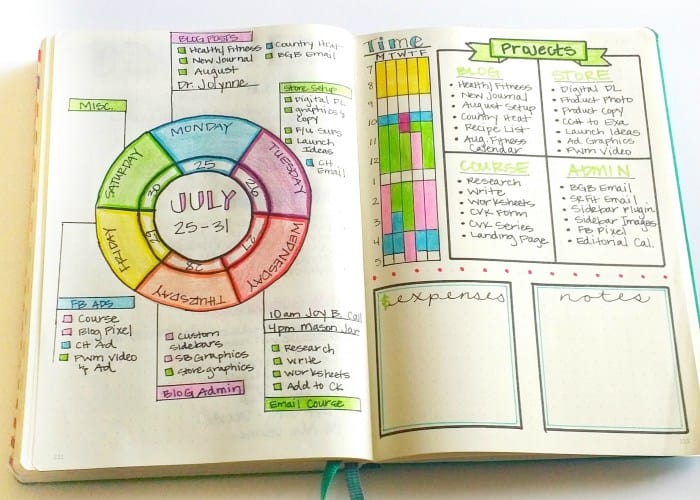 BLOG POSTS
Health/Fitness
New Journal
August
Dr. Jolynne
Country Heat
BGB Email
Store Setup
Digital DL
graphics &
copy
F/U SUPS
Launch
Ideas
CH
Email
MISC.
MONDAY
25
TUESDAY
26
WEDNESDAY
27
THURSDAY
28
FRIDAY
29
SATURDAY
30
JULY
25-31
FB ADS
Course
Blog Pixel
CH Ad
PWM Video
& Ad
Custom
sidebars
SB Graphics
Store graphics
Blog Admin
10am Joy B. Call
4pm Mason Jar
Research
Write
Worksheets
Add to CK
Email Course
Time
M T W T F
7
8
9
10
11
12
1
2
3
4
5
Projects
BLOG
Health/Fitness
New Journal
August Setup
Country Heat
Recipe List
Aug. Fitness
Calendar
STORE
Digital DL
Product Photo
Product Copy
Launch Ideas
Ad Graphics
PWM Video
COURSE
Research
Write
Worksheets
CVK Form
CVK Series
Landing Page
ADMIN
BGB Email
SRFit Email
Sidebar Plugin
Sidebar Images
FB Pixel
Editorial Cal.
$expenses
notes